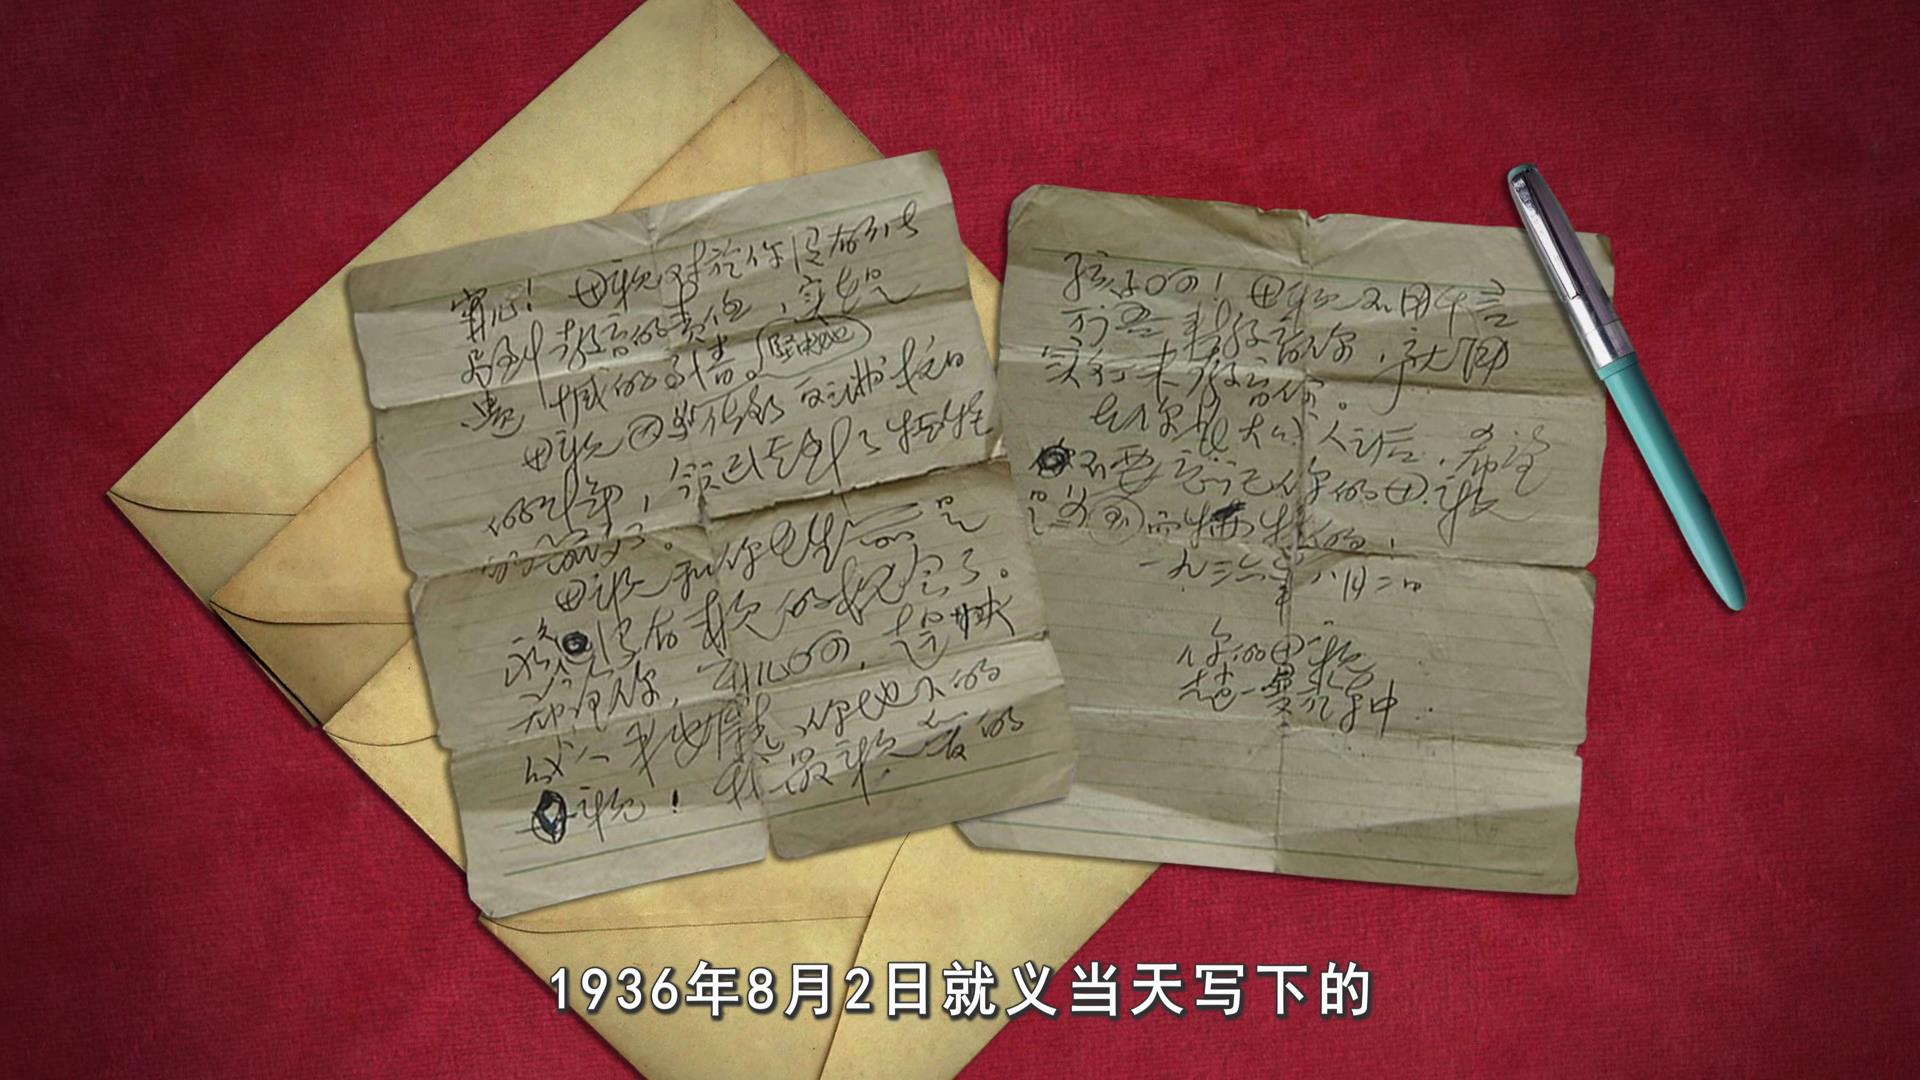 宁儿！母亲对于你没有能
尽到教育的责任，实在是
遗憾的事情。
母亲因为坚决地
做了反满抗日
的斗争，今天已经到了牺牲
的前夕了。
母亲和你在生前是
永久没有再见的机会了。
希望你，宁儿啊！赶快
成人，来安慰你地下的
母亲！我最亲爱的
孩子啊！母亲不用千言
万语来教育你，就用
实行来教育你。
在你长大成人之后，希望
不要忘记你的母亲
是为国而牺牲的！
一九三六年八月二日
你的母亲
赵一曼于车中
1936年8月2日就义当天写下的